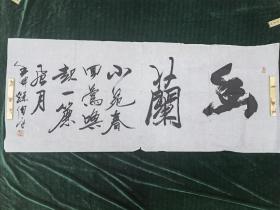 幽蘭
小苑春
回鶯喚
起一簾
風月